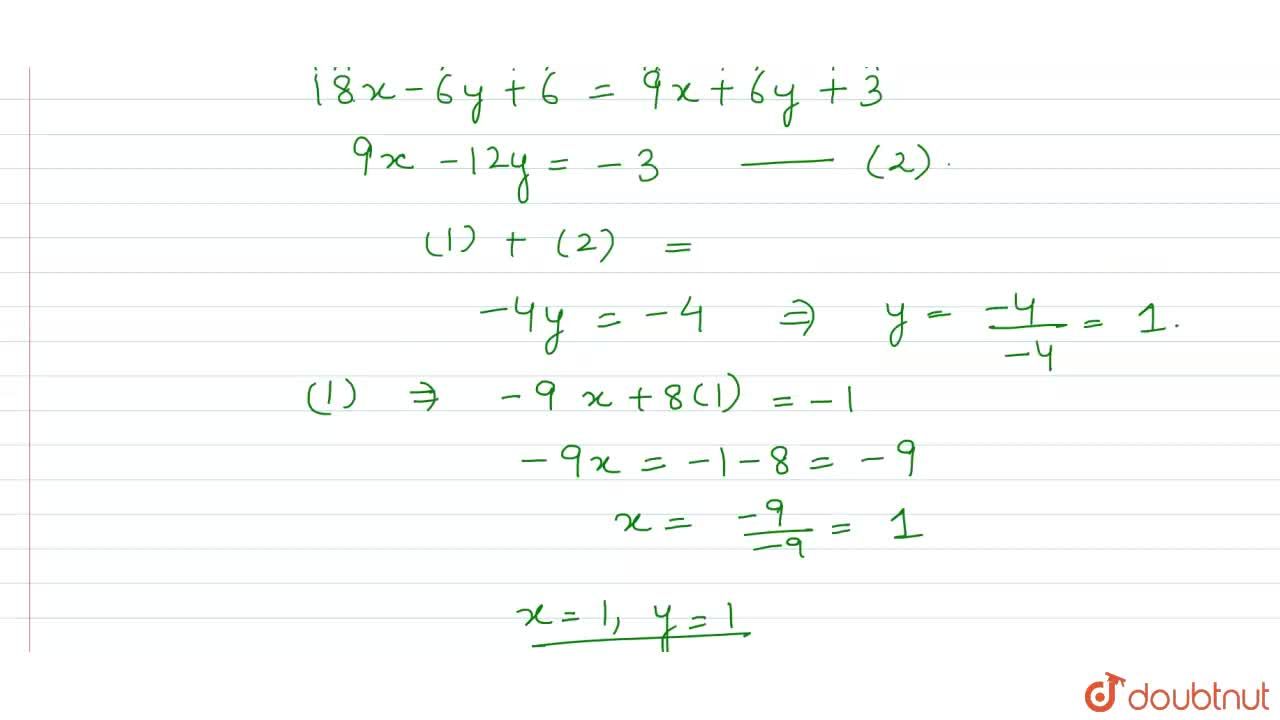 18x - 6y + 6 = 9x + 6y + 3
9x - 12y = - 3 —— (2).
(1) + (2) =
-4y = -4 ⇒ y = -4/-4 = 1.
(1) ⇒ -9 x + 8(1) = -1
-9x = -1 - 8 = -9
x = -9/-9 = 1
x = 1, y = 1
doubtnut